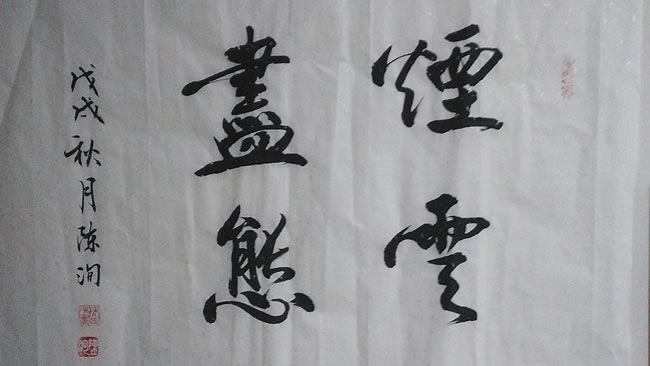 煙雲
盡態
戊戌秋月陈洵